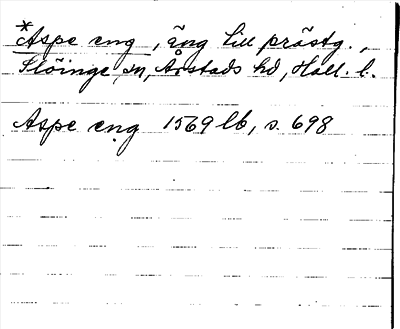 *Aspe eng, äng till prästg.,
Slöinge sn, Årstads hd, Hall. l.
Aspe eng 1569 lb, s. 698